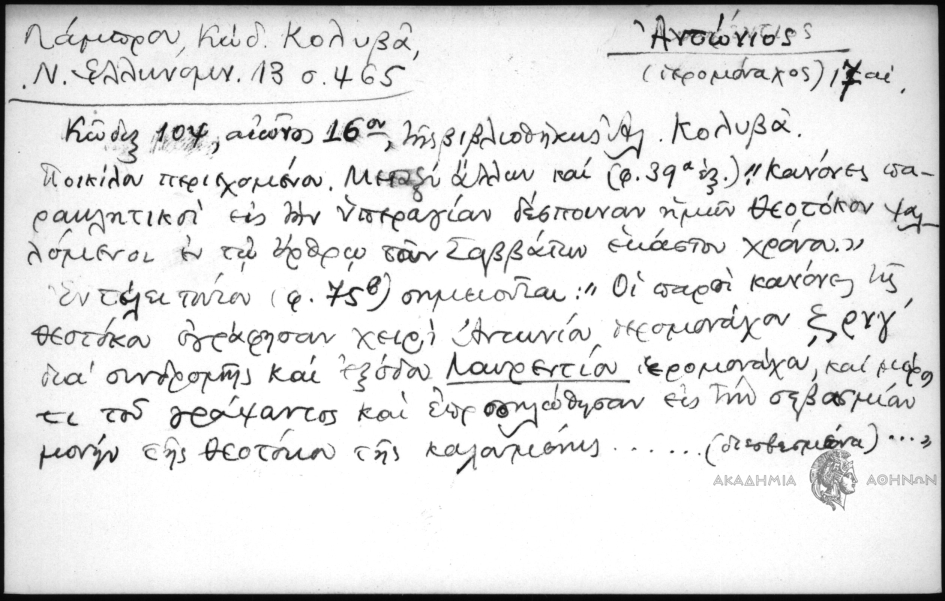 Λάμπρου, Κώδ. Κολυβᾶ,
Ν. Ἑλληνομν. 13 σ. 465
Ἀντώνιος
(ἱερομόναχος) 17 αἰ.
Κῶδιξ 104, αἰῶνος 16ου, τῆς βιβλιοθήκης Ἀλ. Κολυβᾶ.
Ποικίλου περιεχομένου. Μεταξὺ ἄλλων καὶ (φ. 39α ἑξ.) "Κανόνες πα-
ρακλητικοὶ εἰς τὴν ὑπεραγίαν δέσποιναν ἡμῶν Θεοτόκον ψαλ-
λόμενοι ἐν τῷ ὄρθρῳ τῶν Σαββάτων ἑκάστου χρόνου."
Ἐν τέλει τούτου (φ. 75β) σημειοῦται: "Οἱ παρὸ κανόνες τῆς
Θεοτόκου ἐγράφησαν χειρὶ Ἀντωνίου ἱερομονάχου
διὰ συνδρομῆς καὶ ἐξόδου Λαυρεντίου ἱερομονάχου, καὶ μέρος
τι τοῦ γράψαντος καὶ ἐπροσηλώθησαν εἰς τὴν σεβασμίαν
μονὴν τῆς Θεοτόκου τῆς ...... (διεσβεσμένα) ..."
ΑΚΑΔΗΜΙΑ ΑΘΗΝΩΝ